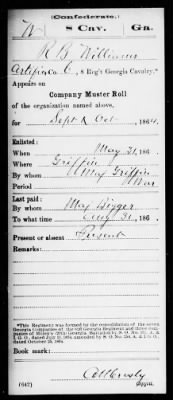 (Confederate.)
W 8 Cav. Ga.
R B Williams
Artificer Co. C, 8 Reg't Georgia Cavalry.*
Appears on
Company Muster Roll
of the organization named above,
for Sept & Oct, 1864.
Enlisted:
When May 21, 186 .
Where Griffin
By whom Maj Griffin
Period War
Last paid:
By whom Maj Bigger
To what time Aug 31, 186 .
Present or absent Present
Remarks:
*This Regiment was formed by the consolidation of the seven
Companies of the 62d Georgia Regiment and three com-
panies of
I. G. O., dated July 11, 1864, amended by S. O. No. , A. & I. G. O.,
dated October 1864.
Book mark:
(642) Copyist.